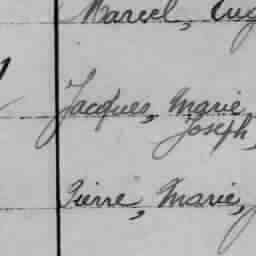 Marcel, Eug
Jacques, Marie
Joseph,
Pierre, Marie,